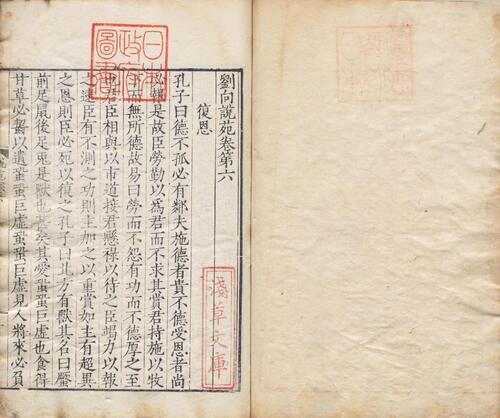 劉向說苑卷第六
復恩
孔子曰德不孤必有鄰夫施德者貴不德受恩者尚
必報是故臣勞勤以為君而不求其賞君持施以牧
下而無所德故易曰勞而不怨有功而不德厚之至
也君臣相與以市道接君懸祿以待之臣竭力以報
之逮臣有不測之功則主加之以重賞如主有超異
之恩則臣必死以復之孔子曰北方有獸其名曰蟨
前足鼠後足兎是獸也甚矣其愛蛩蛩巨虛也食得
甘草必齧以遺蛩蛩巨虛蛩蛩巨虛見人將來必負
日本
政府
圖書
淺草文庫